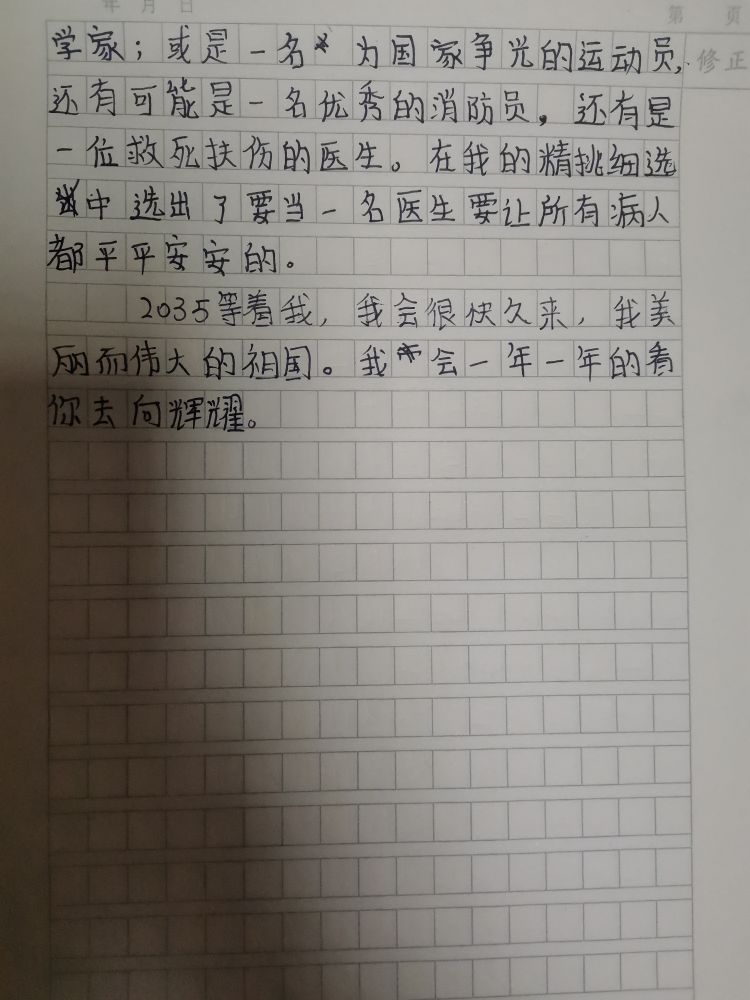 年 月 日
第 页
修正
学家；或是一名为国家争光的运动员，
还有可能是一名优秀的消防员，还有是
一位救死扶伤的医生。在我的精挑细选
中选出了要当一名医生要让所有病人
都平平安安的。
2035等着我，我会很快久来，我美
丽而伟大的祖国。我会一年一年的看
你去向辉耀。